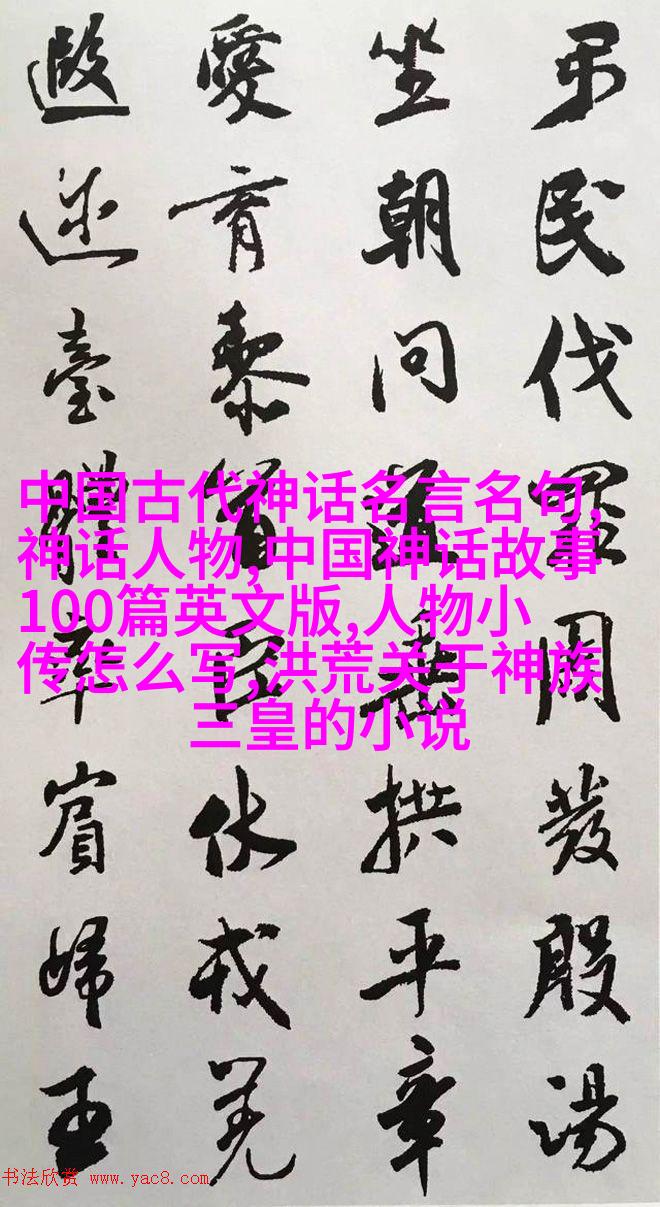 弔民伐罪周發殷湯
坐朝問道垂拱平章
愛育黎首臣伏戎羌
遐邇壹體率賓歸王
中国古代神话名言名句,
神话人物,中国神话故事
100篇英文版,人物小
传怎么写,洪荒关于神族
三皇的小说
书法欣赏 www.yac8.com